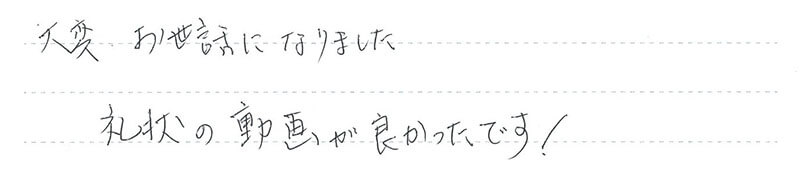 大変 お世話になりました
礼状の動画が良かったです!